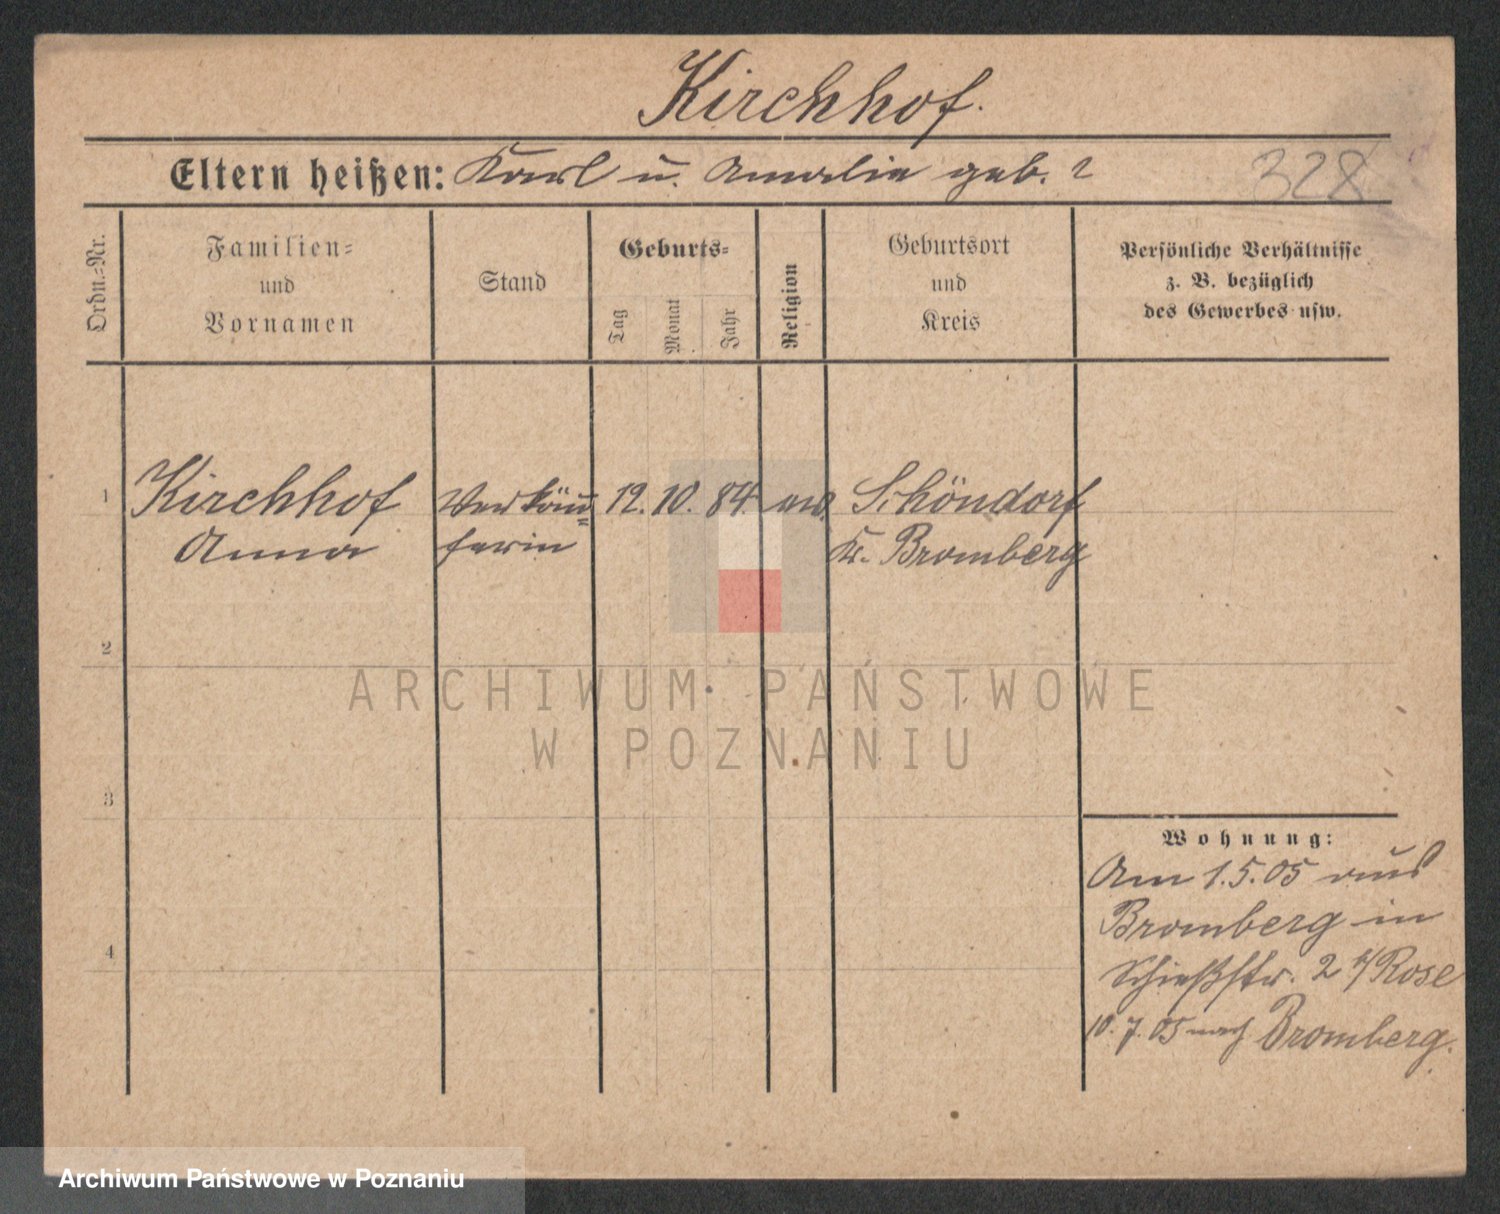 Kirchhof.
Eltern heißen: Karl u. Amalie geb. ?
328
Ordn.=Nr.
Familien=
und
Vornamen
Stand
Geburts=
Tag
Monat
Jahr
Religion
Geburtsort
und
Kreis
Persönliche Verhältnisse
z. B. bezüglich
des Gewerbes usw.
1
Kirchhof Verkäu= 12. 10. 84. Schöndorf
Anna ferin Kr. Bromberg
2
ARCHIWUM PAŃSTWOWE
W POZNANIU
3
Wohnung:
Am 1.5.05 aus
Bromberg in
4
Schießstr. 2 b/Rose
10.7.05 nach Bromberg.
Archiwum Państwowe w Poznaniu